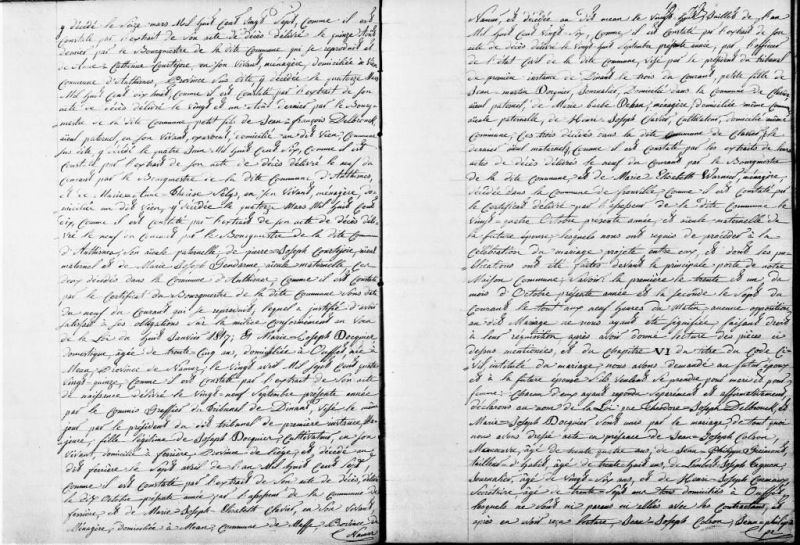 y décédé le Seize mars Mil huit Cent Vingt Sept, Comme il est
Constaté par l'extrait de Son acte de décès délivré le quinze
dernier par le Bourgmestre de la dite Commune qui se reproduit et
de Catherine Courtejoie, en Son Vivant, ménagère, domiciliée à
Commune d'Anthisnes, Province Sus dite y décédée le quatorze
Mil huit Cent dix huit, Comme il est Constaté par l'extrait de Son
acte de décès délivré le Vingt et un dernier par le Bourg-
mestre de la dite Commune petit fils de Jean-François Delbrouck
aïeul paternel, en Son Vivant, domicilié au dit Vien, Commune
Sus dite, y décédé le quatre Mil huit Cent Six, Comme il est
Constaté par l'extrait de Son acte de décès délivré le neuf du
Courant par le Bourgmestre de la dite Commune d'Anthisnes,
et de Marie-Anne en Son Vivant, ménagère, do-
miciliée au dit Vien, y décédée le quatorze Mars Mil huit Cent
dix, Comme il est Constaté par l'extrait de Son acte de décès déli-
vré le neuf du Courant par le Bourgmestre de la dite Com-
d'Anthisnes, Son aïeule paternelle, de pierre-Joseph Courtejoie, aïeul
maternel et de Marie Joseph Gendarme aïeule maternelle, Ces
deux décédés dans la Commune d'Anthisnes, Comme il est Constaté
par le Certificat du Bourgmestre de la dite Commune Sous date
du neuf du Courant qui se reproduit, lequel a justifié d'avoir
Satisfait à Ses obligations Sur la milice Conformément au Vœu
de la Loi du huit Janvier 1817; Et Marie-Joseph Docquier
domestique, âgée de trente Cinq ans, domiciliée à Ouffet, née à
Mean, Province de Namur, le Vingt avril Mil Sept Cent quatre
Vingt quinze, Comme il est Constaté par l'extrait de Son acte
de naissance délivré le Vingt-neuf Septembre présente année
par le Commis Greffier du tribunal de Dinant, Visé le même
jour par le président du dit tribunal de première instance,
fille légitime de Joseph Docquier, Cultivateur, en Son
Vivant, domicilié à ferrière, Province de Liège, et décédé au
dit ferrière le Sept avril de l'an Mil huit Cent Sept,
Comme il est Constaté par l'extrait de Son acte de décès, délivré
le dix Octobre présente année par l'assesseur de la Commune de
ferrière, et de Marie-Joseph Elisabeth Clavier, en Son Vivant,
Ménagère, domiciliée à Mean, Commune de Maffe, Province de
Namur
Namur, et décédée au dit mean le Vingt-huit Juillet de l'an
Mil huit Cent Vingt Six, Comme il est Constaté par l'extrait de Son
acte de décès délivré le Vingt huit Septembre présente année, par l'officier
de l'état Civil de la dite Commune, Visé par le président du tribunal
de première instance de Dinant le trois du Courant, petite fille de
Jean-martin Docquier, Journalier, Domicilié dans la Commune de
aïeul paternel, de Marie barbe Dehan, ménagère, domiciliée même Commune
aïeule paternelle, de Henri Joseph Clavier, Cultivateur, domicilié même
Commune; Ces trois décédés dans la dite Commune de le
dernier aïeul maternel, Comme il est Constaté par les extraits de leurs
actes de décès délivrés le neuf du Courant par le Bourgmestre
de la dite Commune, et de Marie-Elisabeth Warnier, ménagère,
décédée dans la Commune de Comme il est Constaté par
le Certificat délivré par l'assesseur de la dite Commune le
Vingt-quatre Octobre présente année, et aïeule maternelle de
la future épouse, lesquels nous ont requis de procéder à la
Célébration du mariage projeté entre eux, et dont les pu-
blications ont été faites devant la principale porte de notre
Maison Commune, Savoir la première le trente et un du
mois d'Octobre présente année et la Seconde le Sept du
Courant, le tout aux neuf heures du Matin, aucune opposition
au dit Mariage ne nous ayant été Signifiée, faisant droit
à leur réquisition après avoir donné lecture des pièces ci
dessus mentionnées, et du Chapitre VI du titre du Code Ci-
vil intitulé du mariage, nous avons demandé au futur époux
et à la future épouse S'ils Veulent Se prendre pour mari et pour
femme: Chacun d'eux ayant répondu Séparément et affirmativement
déclarons au nom de la Loi que Théodore-Joseph Delbrouck, et
Marie-Joseph Docquier Sont unis par le mariage, de tout quoi
nous avons dressé acte en présence de Jean Joseph Colson,
Manœuvre, âgé de trente quatre ans, de Jean-Philippe
tailleur d'habit, âgé de trente huit ans, de Lambert-Joseph
Journalier, âgé de Vingt-Six ans, et de Henri-Joseph
Secrétaire, âgé de trente Sept ans tous domiciliés à Ouffet,
lesquels ne Sont ni parens ni alliés avec les Contractans, et
après en avoir reçu lecture, Jean-Joseph Colson, Jean-philippe